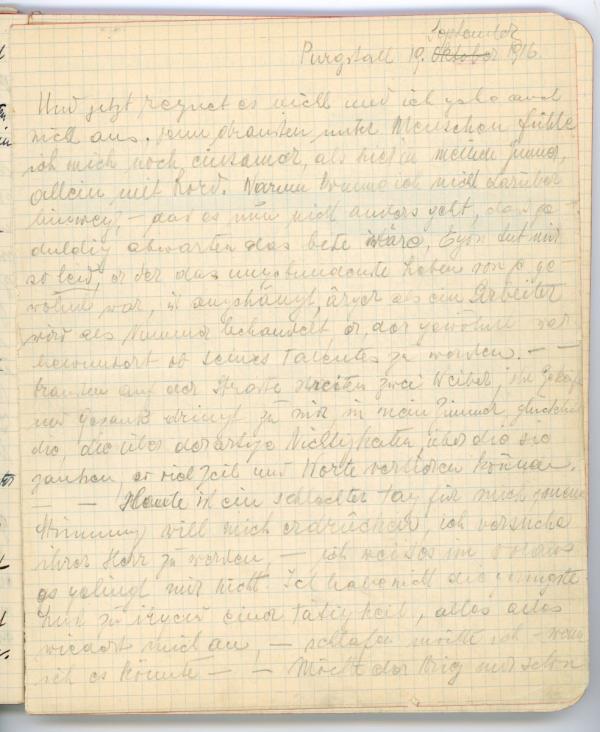 September
Purgstall 19. Oktober 1916.
Und jetzt regnet es nicht und ich gehe auch
nicht aus. Denn draussen unter Menschen fühle
ich mich noch einsamer, als hier in meinem Zimmer,
allein mit Lord. Warum komme ich nicht darüber
hinweg, – das es nun nicht anders geht, das ge-
duldig abwarten das beste wäre, Egon tut mir
so leid, er der das ungebundenste Leben von je ge-
wöhnt war, ist angehängt, ärger als ein Arbeiter
wird als Nummer behandelt, er, der gewöhnt war
bewundert ob seines Talentes zu werden. – –
draußen auf der Straße streiten zwei Weiber, ihr
und Gezank dringt zu mir in mein Zimmer, glücklich
die, die über derartige Nichtigkeiten, über die sie
zanken, so viel Zeit und Worte verlieren können.
– – Heute ist ein schlechter Tag für mich, meine
Stimmung will mich erdrücken, ich versuche
ihrer Herr zu werden, – ich weiß es im voraus
es gelingt mir nicht. Ich habe nicht die geringste
Lust zu irgend einer Tätigkeit, alles alles
widert mich an, – schlafen möchte ich – wenn
ich es könnte – – Möchte der Krieg nur schon